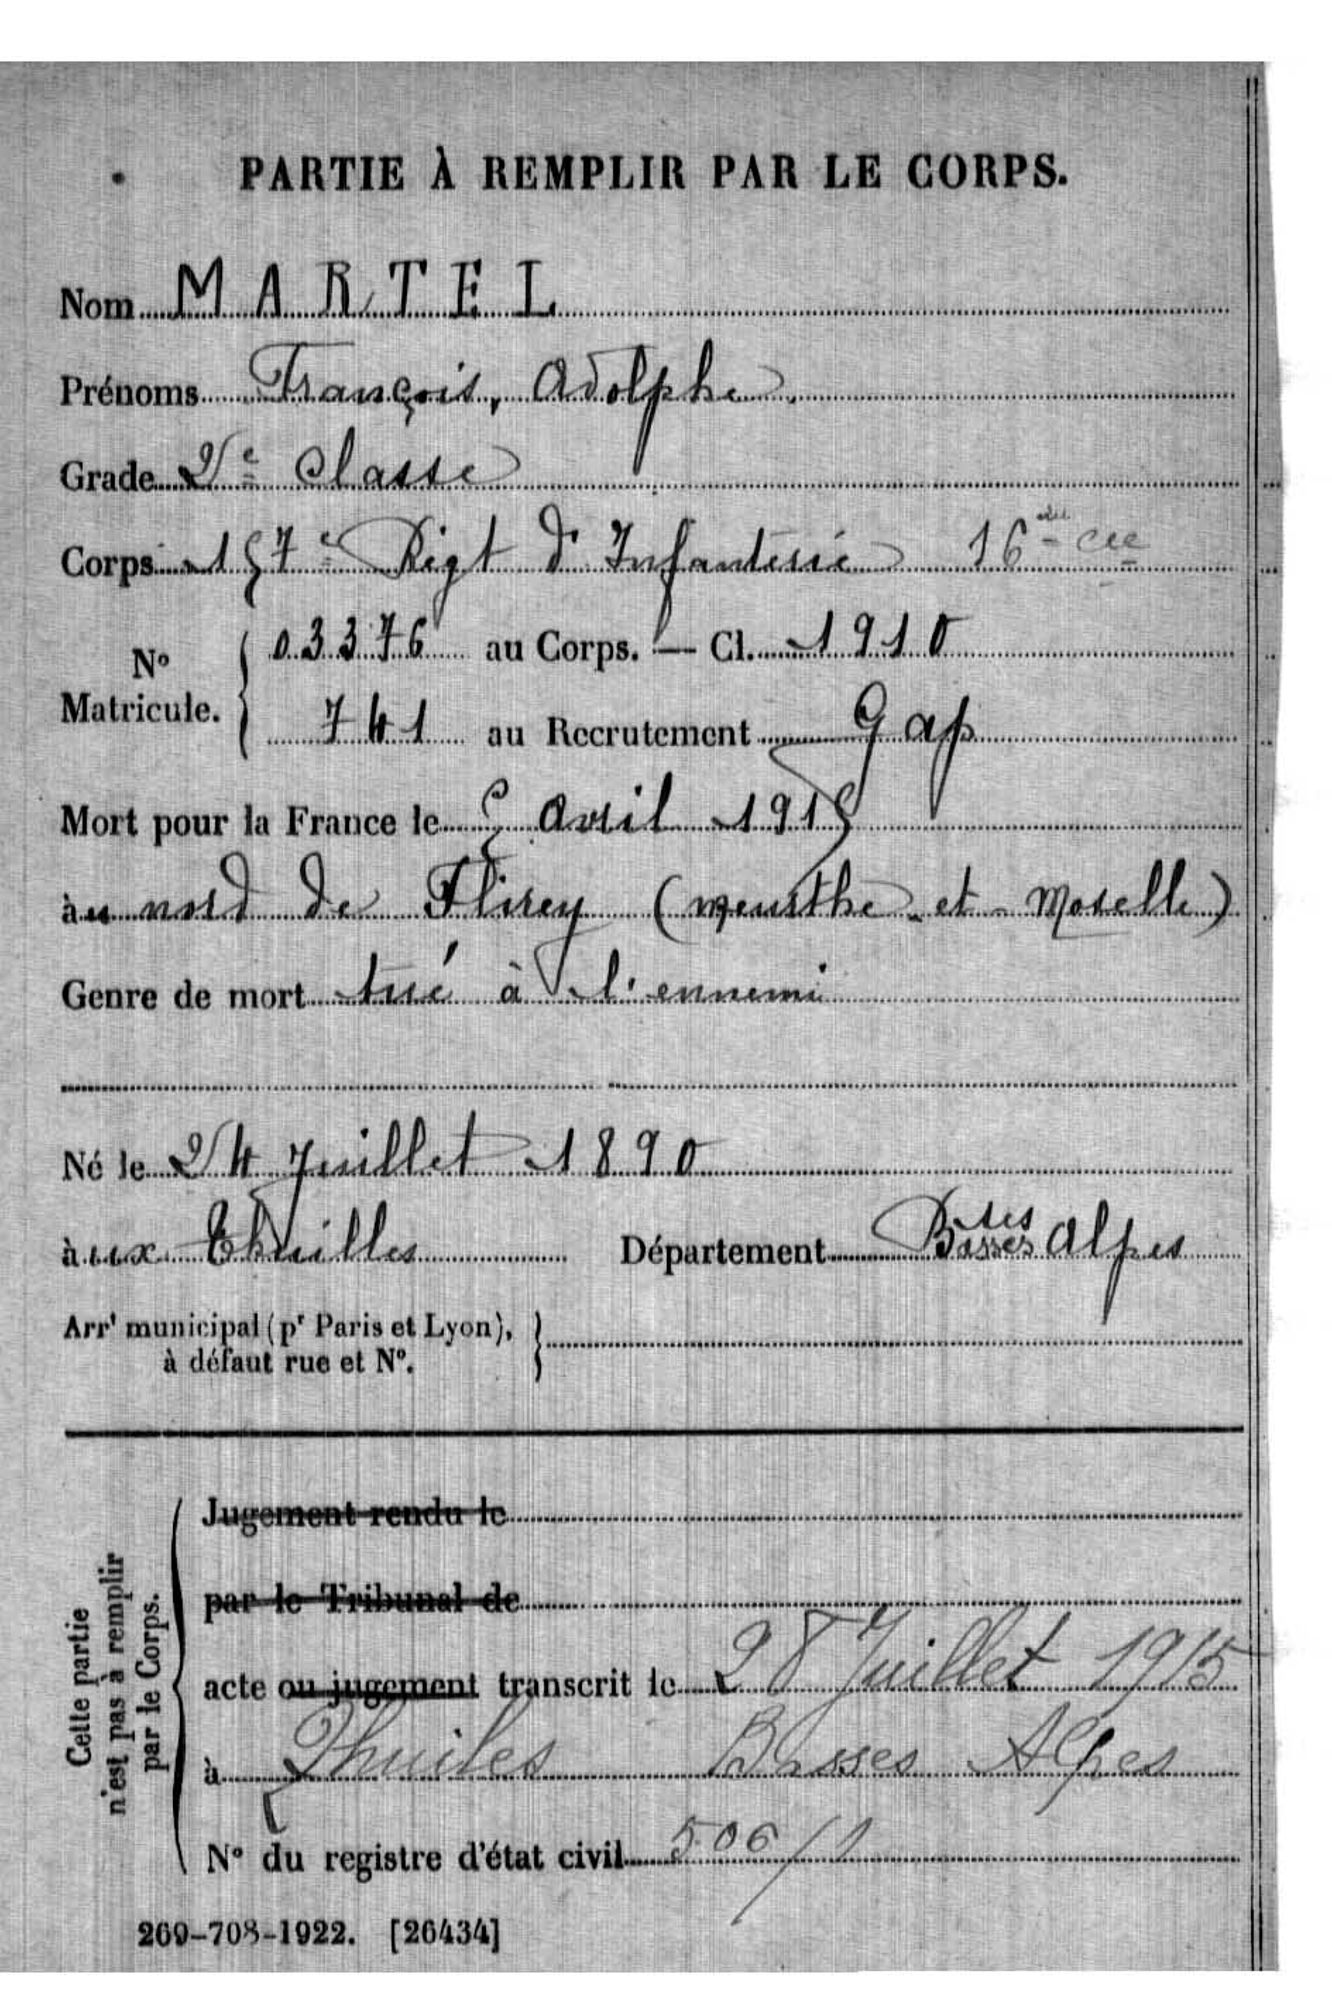 PARTIE À REMPLIR PAR LE CORPS.
Nom MARTEL
Prénoms François, Adolphe.
Grade 2e classe
Corps 157e Régt d'Infanterie 16e Cie
N° Matricule. { 03376 au Corps. — Cl. 1910
741 au Recrutement Gap
Mort pour la France le 5 avril 1915
àu nord de Flirey (Meurthe-et-Moselle)
Genre de mort tué à l'ennemi
Né le 24 Juillet 1890
àux Thuilles Département Basses Alpes
Arrt municipal (pr Paris et Lyon),
à défaut rue et N°.
Cette partie
n'est pas à remplir
par le Corps.
Jugement rendu le
par le Tribunal de
acte ou jugement transcrit le 28 Juillet 1915
à Thuiles Basses Alpes
N° du registre d'état civil 506/1
269-708-1922. [26434]